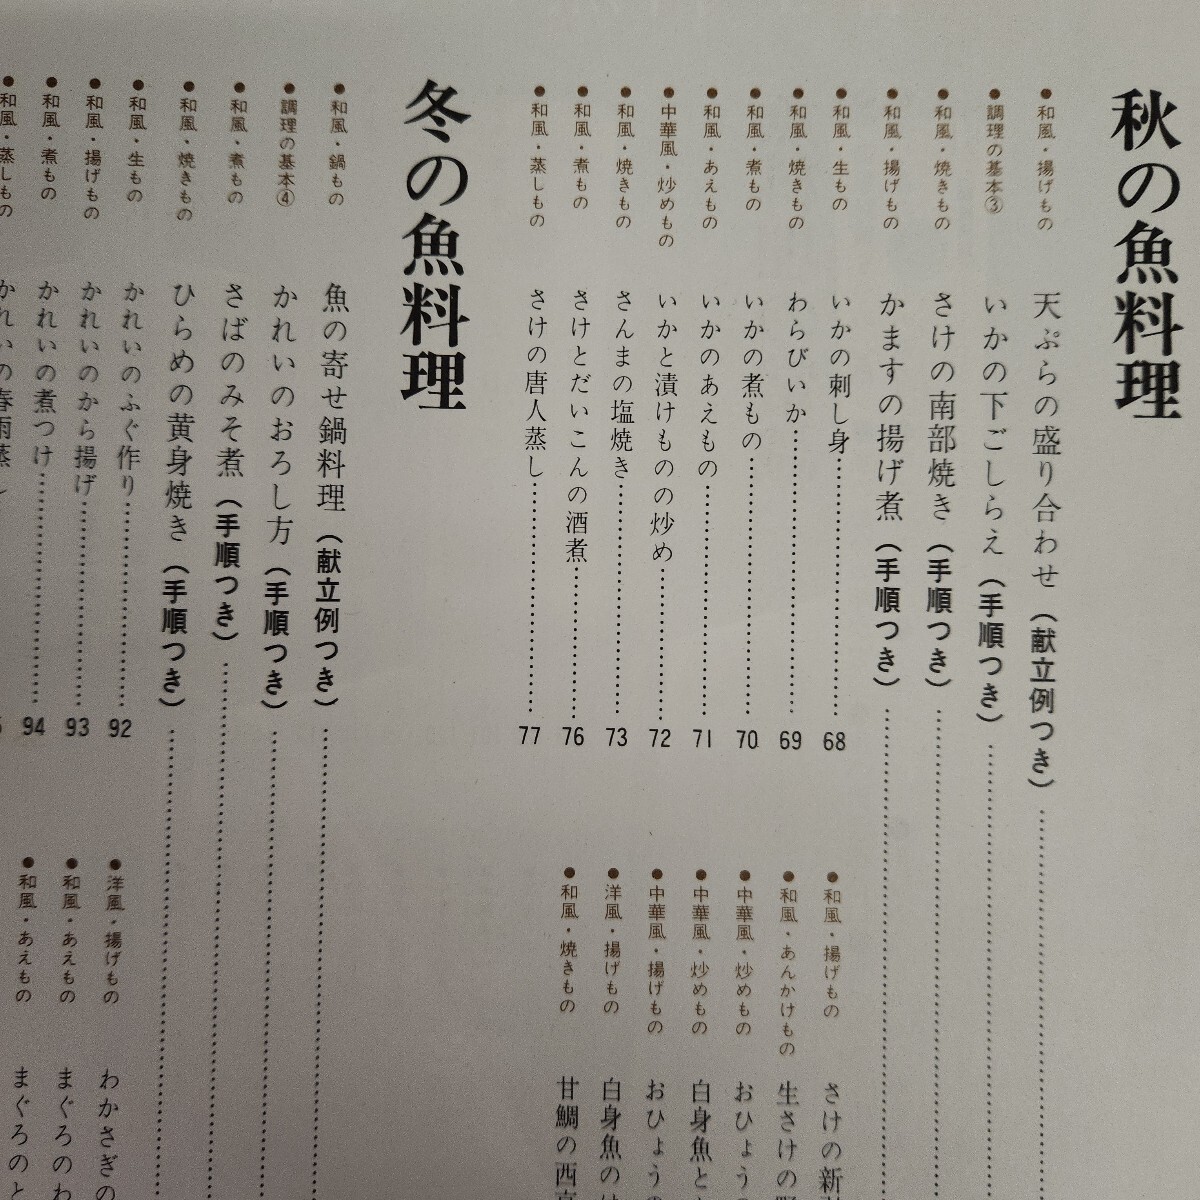 秋の魚料理
●和風・揚げもの 天ぷらの盛り合わせ(献立例つき)
●調理の基本③ いかの下ごしらえ(手順つき)
●和風・焼きもの さけの南部焼き(手順つき)
●和風・揚げもの かますの揚げ煮(手順つき)
●和風・生もの いかの刺し身 68
●和風・焼きもの わらびいか 69
●和風・煮もの いかの煮もの 70
●和風・あえもの いかのあえもの 71
●中華風・炒めもの いかと漬けものの炒め 72
●和風・焼きもの さんまの塩焼き 73
●和風・煮もの さけとだいこんの酒煮 76
●和風・蒸しもの さけの唐人蒸し 77
●和風・揚げもの さけの新
●和風・あんかけもの 生さけの
●中華風・炒めもの おひょう
●中華風・炒めもの 白身魚と
●中華風・揚げもの おひょうの
●洋風・揚げもの 白身魚の
●和風・焼きもの 甘鯛の西
冬の魚料理
●和風・鍋もの 魚の寄せ鍋料理(献立例つき)
●調理の基本④ かれいのおろし方(手順つき)
●和風・煮もの さばのみそ煮(手順つき)
●和風・焼きもの ひらめの黄身焼き(手順つき)
●和風・生もの かれいのふぐ作り 92
●和風・揚げもの かれいのから揚げ 93
●和風・煮もの かれいの煮つけ 94
●和風・蒸しもの かれいの春雨蒸し
●洋風・揚げもの わかさぎの
●和風・あえもの まぐろのわ
●和風・あえもの まぐろのと